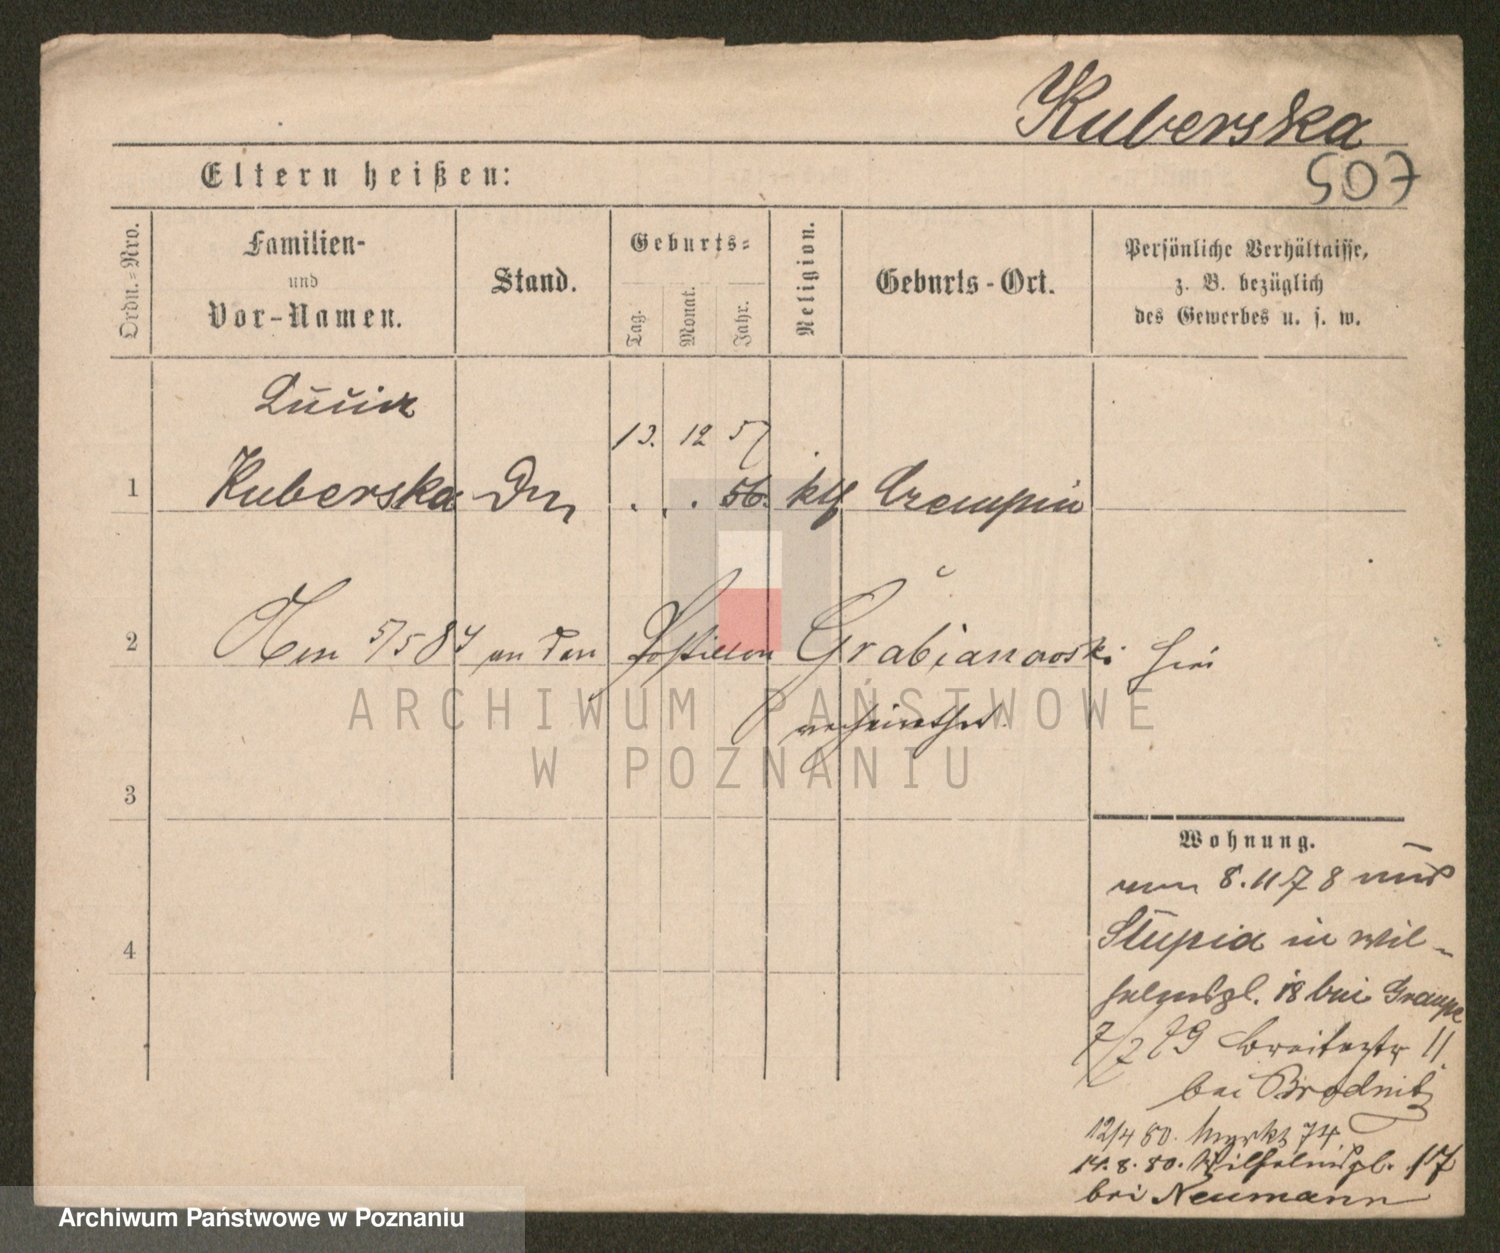 Kuberska
507
Eltern heißen:
Ordn.-Nro.
Familien-
und
Vor-Namen.
Stand.
Geburts-
Tag.
Monat.
Jahr.
Religion.
Geburts-Ort.
Persönliche Verhältnisse,
z. B. bezüglich
des Gewerbes u. s. w.
13. 12 57
1 Kuberska . . 56. kth Czempin
2 5/5 84 an den Postillon Grabianowski hier
verheirathet.
3
Wohnung.
4
von 8.11 78 aus
Stupia in Wil-
helmspl. 18 bei Graupe
7/2 79 Breitestr 11.
bei Brodnitz
12/4 80. Markt 74.
14.8.80. Wilhelmspl. 17
bei Neumann
ARCHIWUM PAŃSTWOWE
W POZNANIU
Archiwum Państwowe w Poznaniu